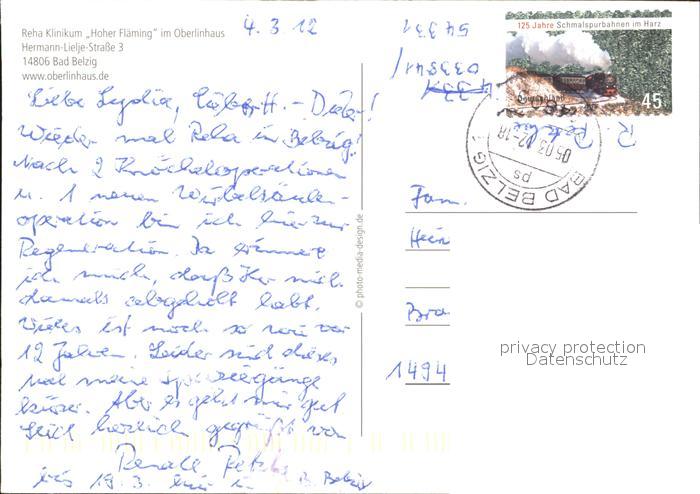 4.3.12
Reha Klinikum „Hoher Fläming" im Oberlinhaus
Hermann-Lielje-Straße 3
14806 Bad Belzig
www.oberlinhaus.de
Liebe Lydia, H. - Dieter!
Wieder mal Reha in Belzig!
Nach 2 Knöcheloperationen
u. 1 neuen Wirbelsäulen-
operation bin ich hier zur
Regeneration. Da erinnere
ich mich, daß Ihr mich
damals abgeholt habt.
Vieles ist noch so wie vor
12 Jahren. Leider sind dieses
mal meine Spaziergänge
kürzer. Aber es geht mir gut
Seid herzlich gegrüßt von
Renate
bis 19.3. hier in B. Belzig
© photo-media-design.de
125 Jahre Schmalspurbahnen im Harz
Deutschland
45
BAD BELZIG 1
05.03.12-18
ps
R.
033841/
54 331
Fam.
Hein
Bra
1494
privacy protection
Datenschutz